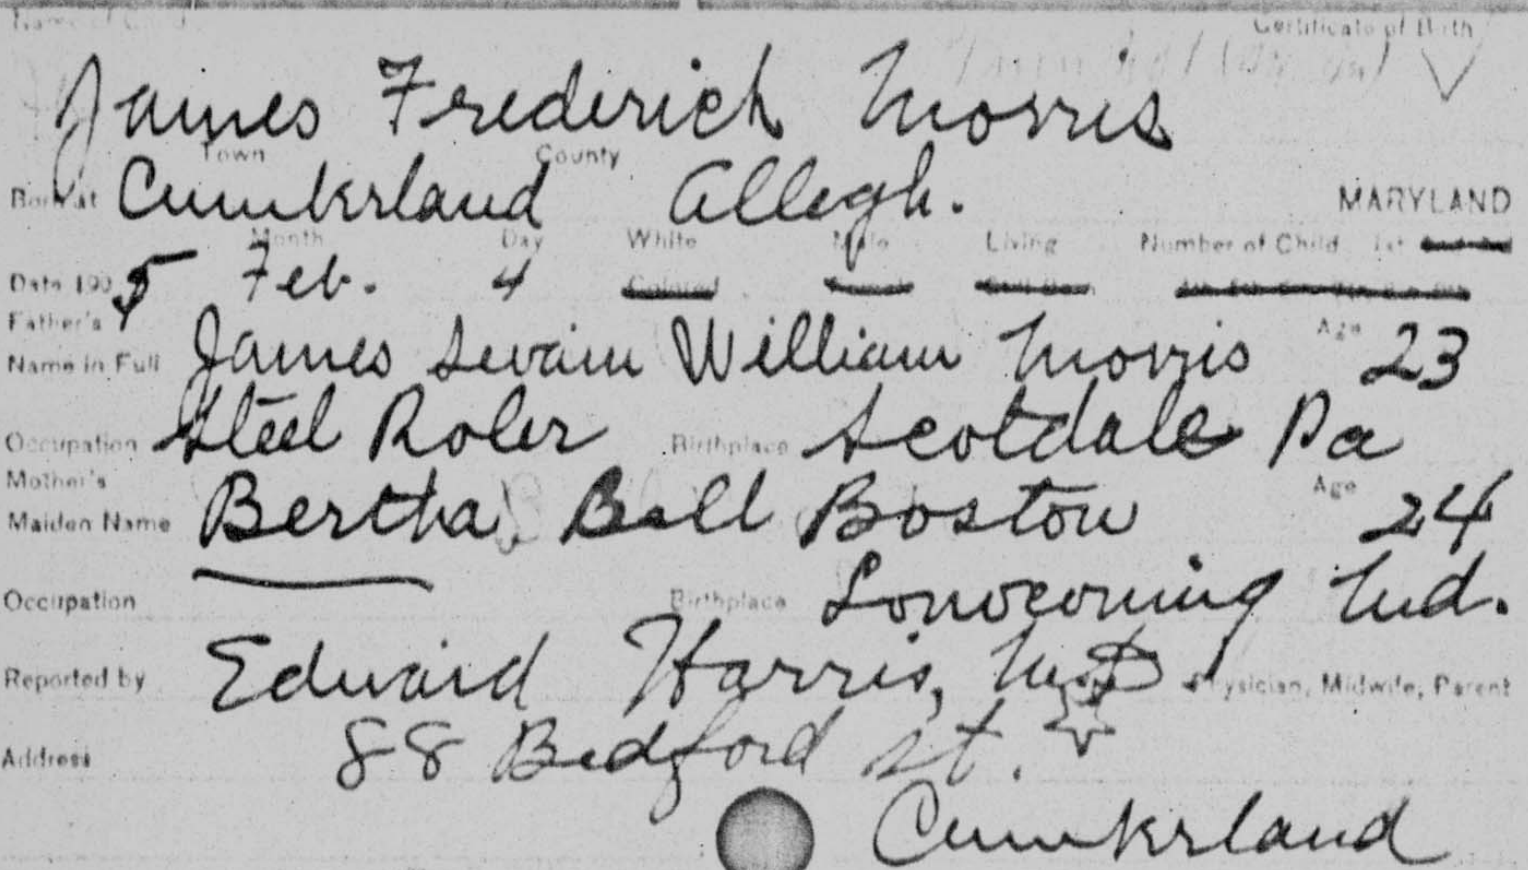 Name of Child Certificate of Birth
James Frederich Morris
Town County
Born at Cumberland Allegh. MARYLAND
Month Day White Male Living Number of Child 1st
Date 190 5 Feb. 4 Colored Female Still Born
Father's Age
Name in Full James Swain William Morris 23
Occupation Steel Roler Birthplace Scotdale Pa
Mother's Age
Maiden Name Bertha Bell Boston 24
Occupation Birthplace Lonoconing Md.
Reported by Edward Harris, M.D. Physician, Midwife, Parent
Address 88 Bedford St.
Cumberland